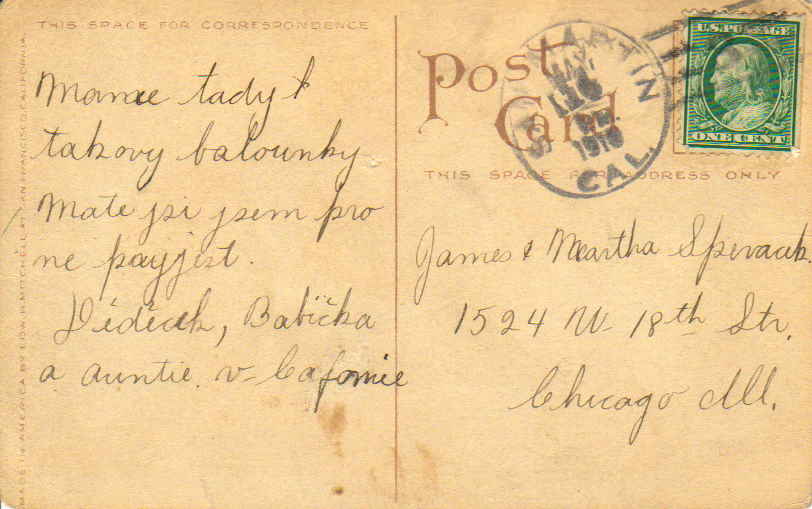 THIS SPACE FOR CORRESPONDENCE
Mamme tady &
takovy balounky
Mate jsi jsem pro
ne payjest.
Dědicek, Babička
a auntie. v- Cafornie
MADE IN AMERICA BY EDW. H. MITCHELL AT SAN FRANCISCO, CALIFORNIA
Post
Card
THIS SPACE FOR ADDRESS ONLY
SAN MARTIN
MAY
16
1910
CAL.
U.S. POSTAGE
ONE CENT
James & Martha Spevacek.
1524 W- 18th Str.
Chicago Ill.